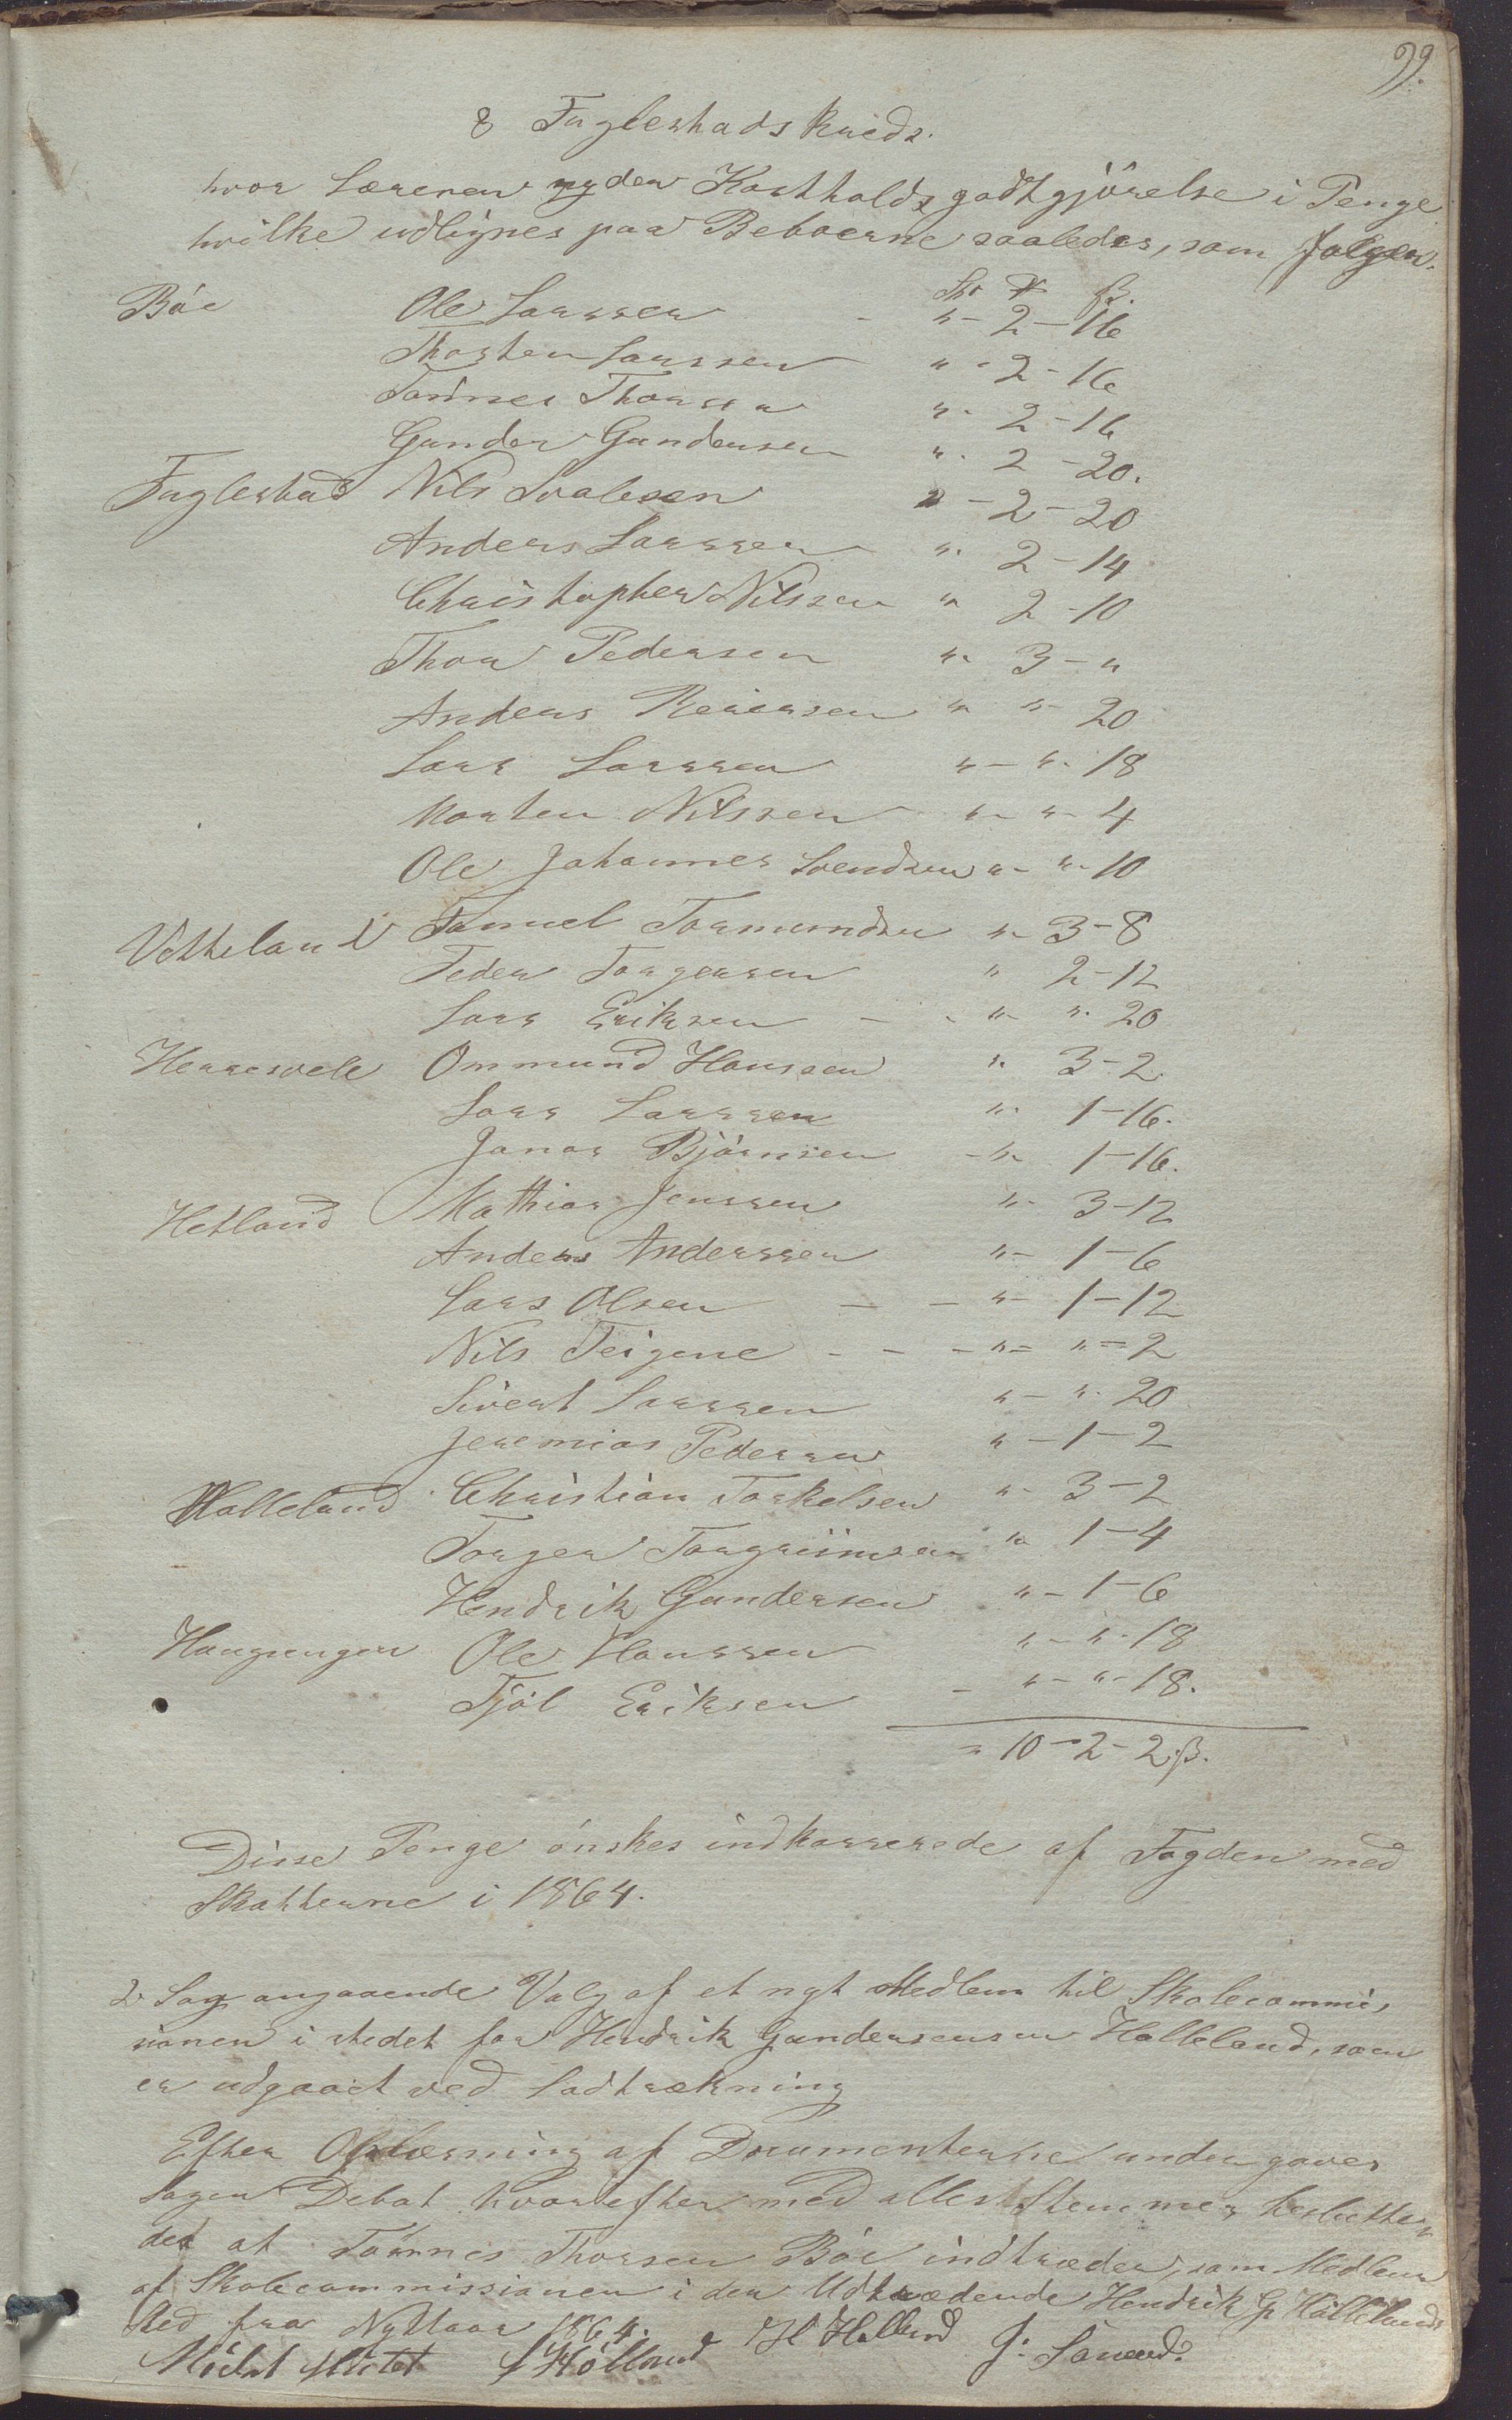 99.
8 Fuglestads Kreds.
hvor Læreren nyder Kostholdsgodtgjörelse i Penge
hvilke udlignes paa Beboerne saaledes, som følger.
Böe Ole Larssen " - 2 - 16
Thorsten Larssen " - 2 - 16
Tönnes Thorsen " - 2 - 16
Gunder Gundersen " - 2 - 20.
Fuglestad Nils Svalesen " - 2 - 20
Anders Larssen " - 2 - 14
Christopher Nilssen " 2 - 10
Thor Pedersen " 3 - "
Anders Reiersen " " 20
Lars Larssen " - " - 18
Morten Nilssen " - " - 4
Ole Johannes Svendsen " - " - 10
Vetteland Samuel Tormundsen " 3 - 8
Peder Torgersen " 2 - 12
Lars Eriksen - - " - " 20
Herresvele Ommund Hanssen " 3 - 2
Lars Larssen " 1 - 16.
Jonas Björnsen - " 1 - 16.
Hetland Mathias Jenssen " 3 - 12
Anders Anderssen " - 1 - 6
Lars Olsen - - " - 1 - 12
Nils Teigene - - - " = " = 2
Sivert Larssen " - " - 20
Jeremias Pedersen " - 1 - 2
Halleland Christian Torkelsen " - 3 - 2
Torger Torgriimsen " 1 - 4
Hendrik Gundersen " - 1 - 6
Haugsengen Ole Hanssen " - " - 18
Tjöl Eriksen - " - " - 18.
= 10 - 2 - 2 ß.
Disse Penge önskes indkasserede af Fogden med
Skatterne i 1864.
2 Sag angaaende Valg af et nyt Medlem til Skolecommis,
sionen i stedet for Hendrik Gundersensen Halleland, som
er udgaaet ved Lodtrækning
Efter Oplæsning af Documenterne undergaves
Sagen Debat hvorefter med alles Stemmer besluttes
det at Tönnes Thorsen Böe indtræder, som Medlem
af Skolecommissionen i den Udtrædende Hendrik G Hallelands
Sted fra Nyttaar 1864.
Mödet sluttet